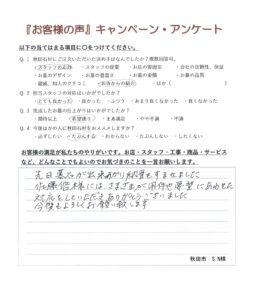 『お客様の声』キャンペーン・アンケート
以下の当てはまる項目に〇をつけてください。
Q.1 秋田石材にご注文いただいた決め手はなんでしたか?複数回答可。
・スタッフの応対 ・スタッフの提案 ・お店の雰囲気 ・会社の信頼性、保証
・お墓のデザイン ・お墓の豊富さ ・お墓の金額 ・お墓の品質
・親戚、知人のクチコミ ・お寺からの紹介 ・ほか( )
Q.2 担当スタッフの対応はいかがでしたか?
・とても良かった ・良かった ・ふつう ・あまり良くなかった ・良くなかった
Q.3 完成したお墓の仕上がりはいかがでしたか?
・期待以上 ・希望通り ・まあ満足 ・やや不満 ・不満
Q.4 今後ほかの人に秋田石材をおススメしますか?
・必ずしたい ・たぶんする ・わからない ・たぶんしない ・したくない
お客様の満足が私たちのやりがいです。お店・スタッフ・工事・商品・サービス
など、どんなことでもよいのでお気づきのことを一言お願いします。
先日墓石が出来あがり納骨をすませました
佐藤 様にはさまざまな 要望にあわせた
対応をしていただきありがとうございました
今後もよろしくお願い致します
秋田市 S.N様